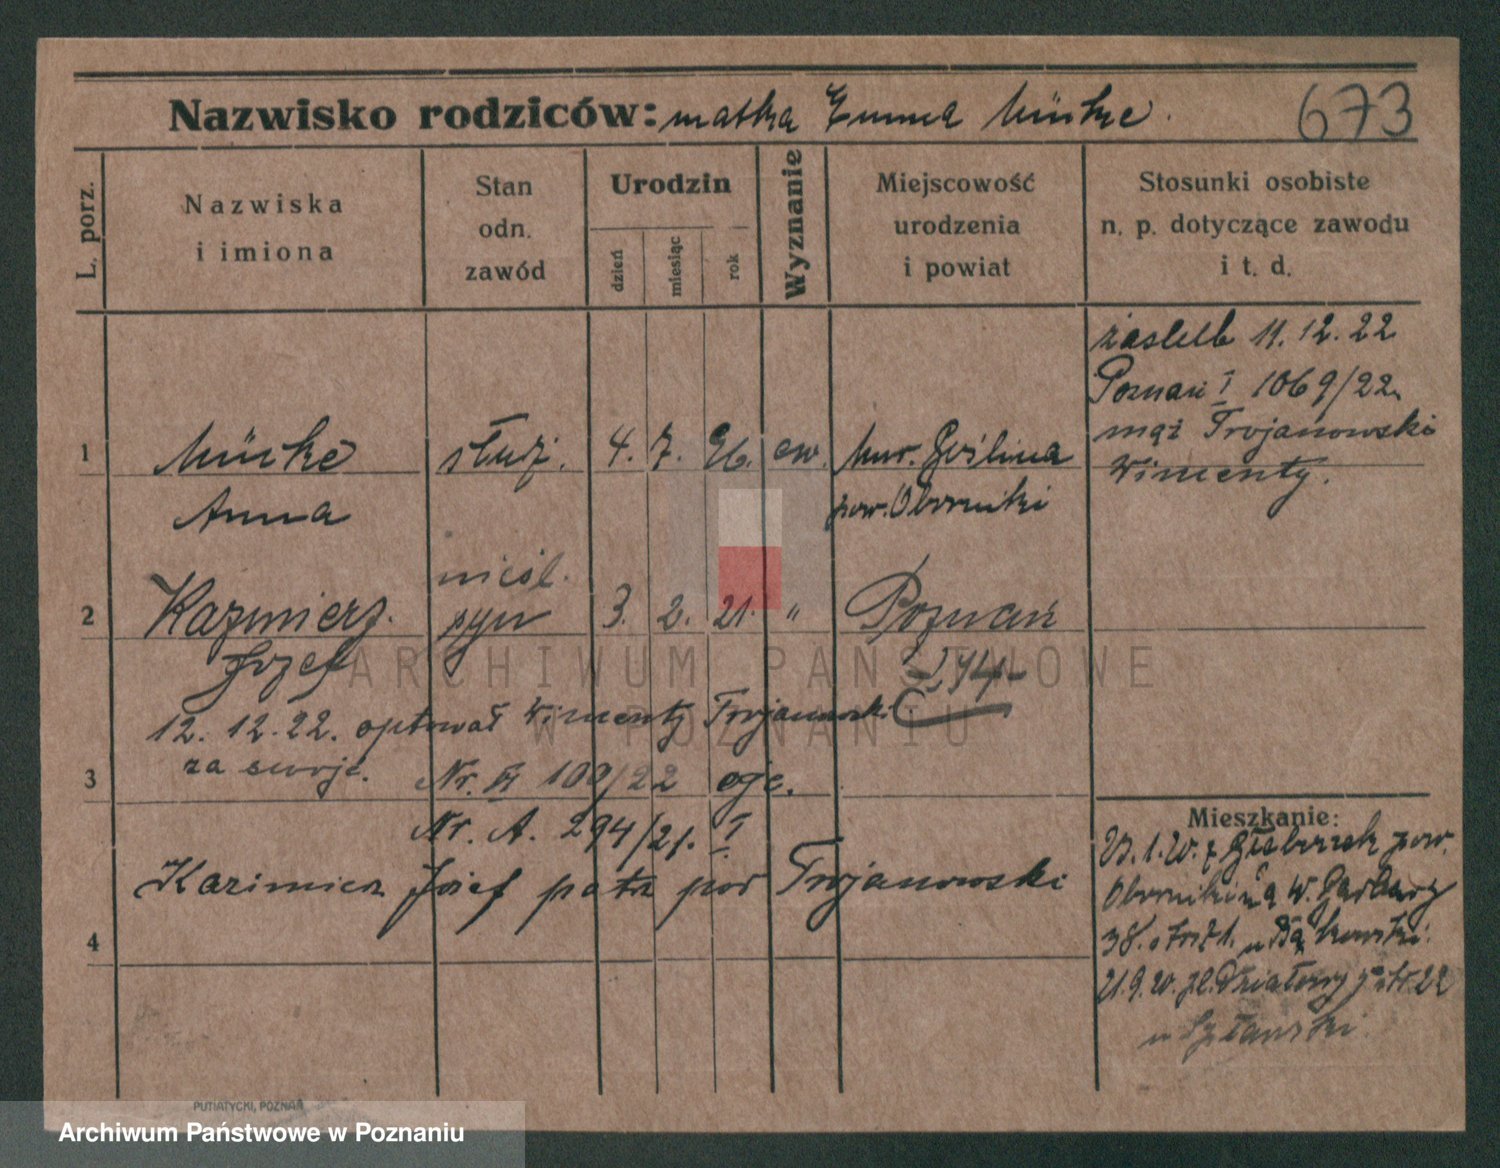 Nazwisko rodziców: matka Emma Mücke. 673
L. porz.
Nazwiska
i imiona
Stan
odn.
zawód
Urodzin
dzień
miesiąc
rok
Wyznanie
Miejscowość
urodzenia
i powiat
Stosunki osobiste
n. p. dotyczące zawodu
i t. d.
zaslub 11. 12. 22
Poznań I 1069/22
mąż Trojanowski
Wincenty.
1 Mücke służ. 4. 7. 96. ew. Mur. Goślina
Anna pow. Oborniki
nieśl.
2 Kazimierz syn 3. 2. 21. " Poznań
Józef
294
12. 12. 22. optował Wincenty Trojanowski
za swoje.
3 Nr. VI 100/22 ojc.
Nr. A. 294/21. I.
Kazimierz Józef patrz pod Trojanowski
4
Mieszkanie:
23.1.20. z pow.
Oborniki W. Garbary
38.
21.9.20. pl. Działowy 22
u
PUTIATYCKI, POZNAŃ
ARCHIWUM PAŃSTWOWE
W POZNANIU
Archiwum Państwowe w Poznaniu